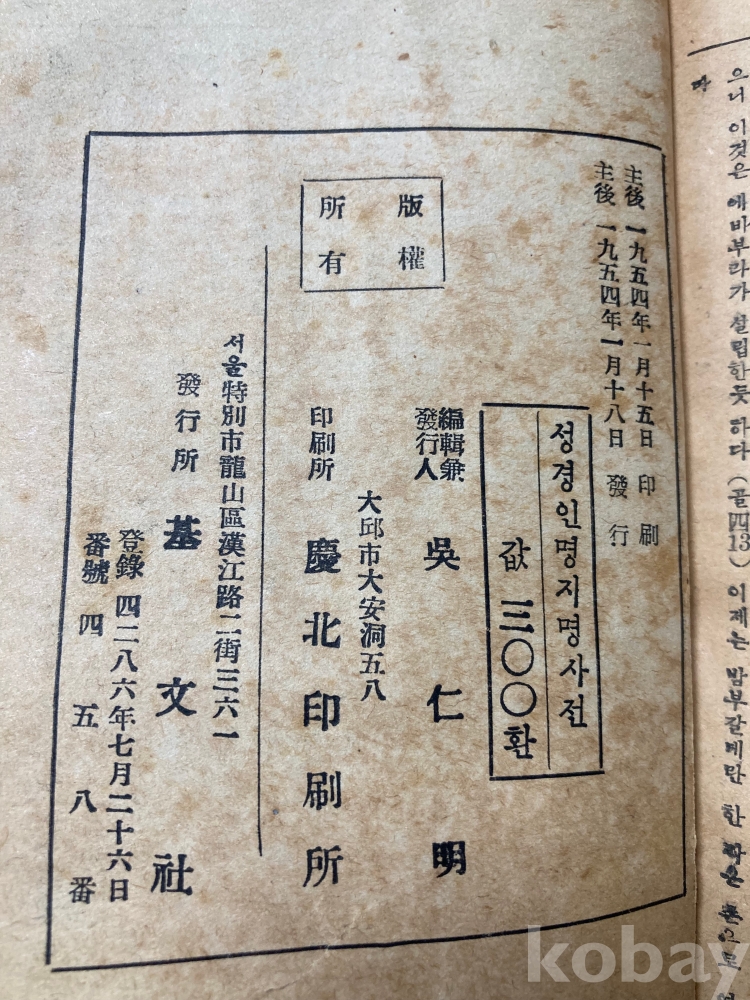 으니 이것은 에바부라가 설립한듯 하다 (골四13) 이제는 밤부갈레만 한
라
主後 一九五四年 一月十五日 印刷
主後 一九五四年 一月十八日 發行
성경인명지명사전
값 三〇〇환
版權
所有
編輯兼
發行人 吳仁明
大邱市大安洞五八
印刷所 慶北印刷所
서울特別市龍山區漢江路二街三六一
發行所 基文社
登錄 四二八六年七月二十六日
番號 四五八番
kobay